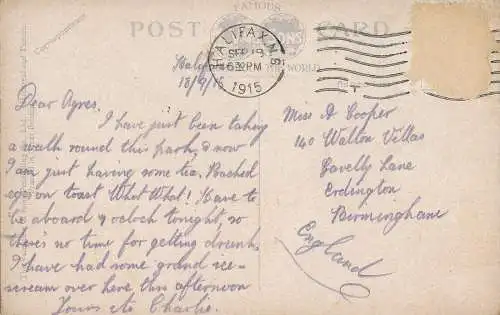 FAMOUS
POST CARD
THE WORLD
HALIFAX, N.S.
SEP 19
6 30 PM
1915
Halifax
18/9/15
Dear Agnes.
I have just been taking
a walk round this park, & now
I am just having some tea, Poached
egg on toast What What! Have to
be aboard 9 oclock tonight, so
there's no time for getting drunk,
I have had some grand ice-
scream over here this afternoon
Yours etc Charlie.
Miss A Cooper
140 Walton Villas
Gavelly Lane
Erdington
Birmingham
England